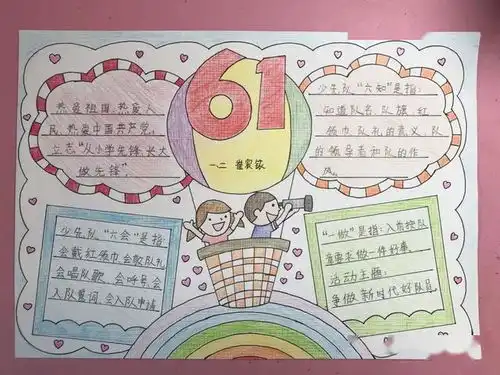 61
一、二 崔家铭
热爱祖国,热爱人
民,热爱中国共产党,
立志“从小学先锋,长大
做先锋”
少先队“六知”是指:
知道队名、队旗、红
领巾、队礼的意义、队
的领导者和队的作
风。
少先队“六会”是指:
会戴红领巾、会敬队礼、
会唱队歌、会呼号、会
入队誓词、会入队申请
“一做”是指:入前按队
章要求做一件好事。
活动主题:
争做新时代好队员